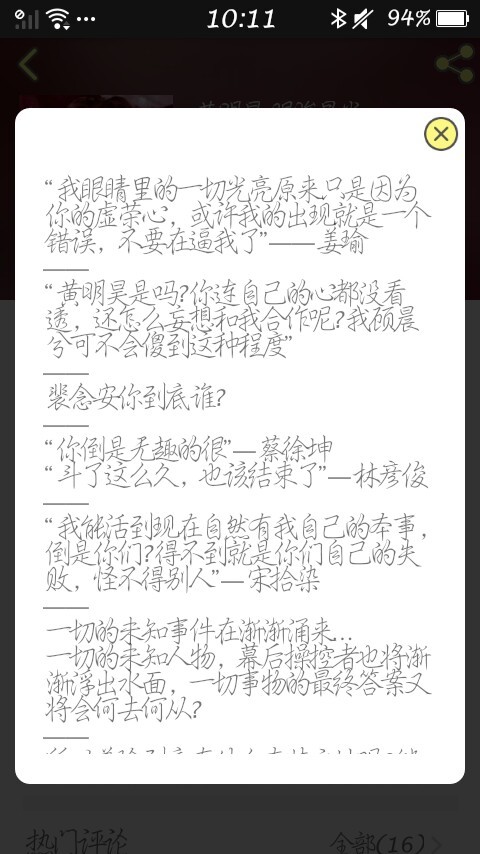 10:11
94%
“我眼睛里的一切光亮原来只是因为
你的虚荣心，或许我的出现就是一个
错误，不要在逼我了”——姜瑜
——
“黄明昊是吗?你连自己的心都没看
透，还怎么妄想和我合作呢?我顾晨
兮可不会傻到这种程度”
——
裴念安你到底谁?
——
“你倒是无趣的很”—蔡徐坤
“斗了这么久，也该结束了”—林彦俊
——
“我能活到现在自然有我自己的本事，
倒是你们?得不到就是你们自己的失
败，怪不得别人”—宋拾染
——
一切的未知事件在渐渐涌来…
一切的未知人物，幕后操控者也将渐
渐浮出水面，一切事物的最终答案又
将会何去何从?
——
热门评论
全部(16)